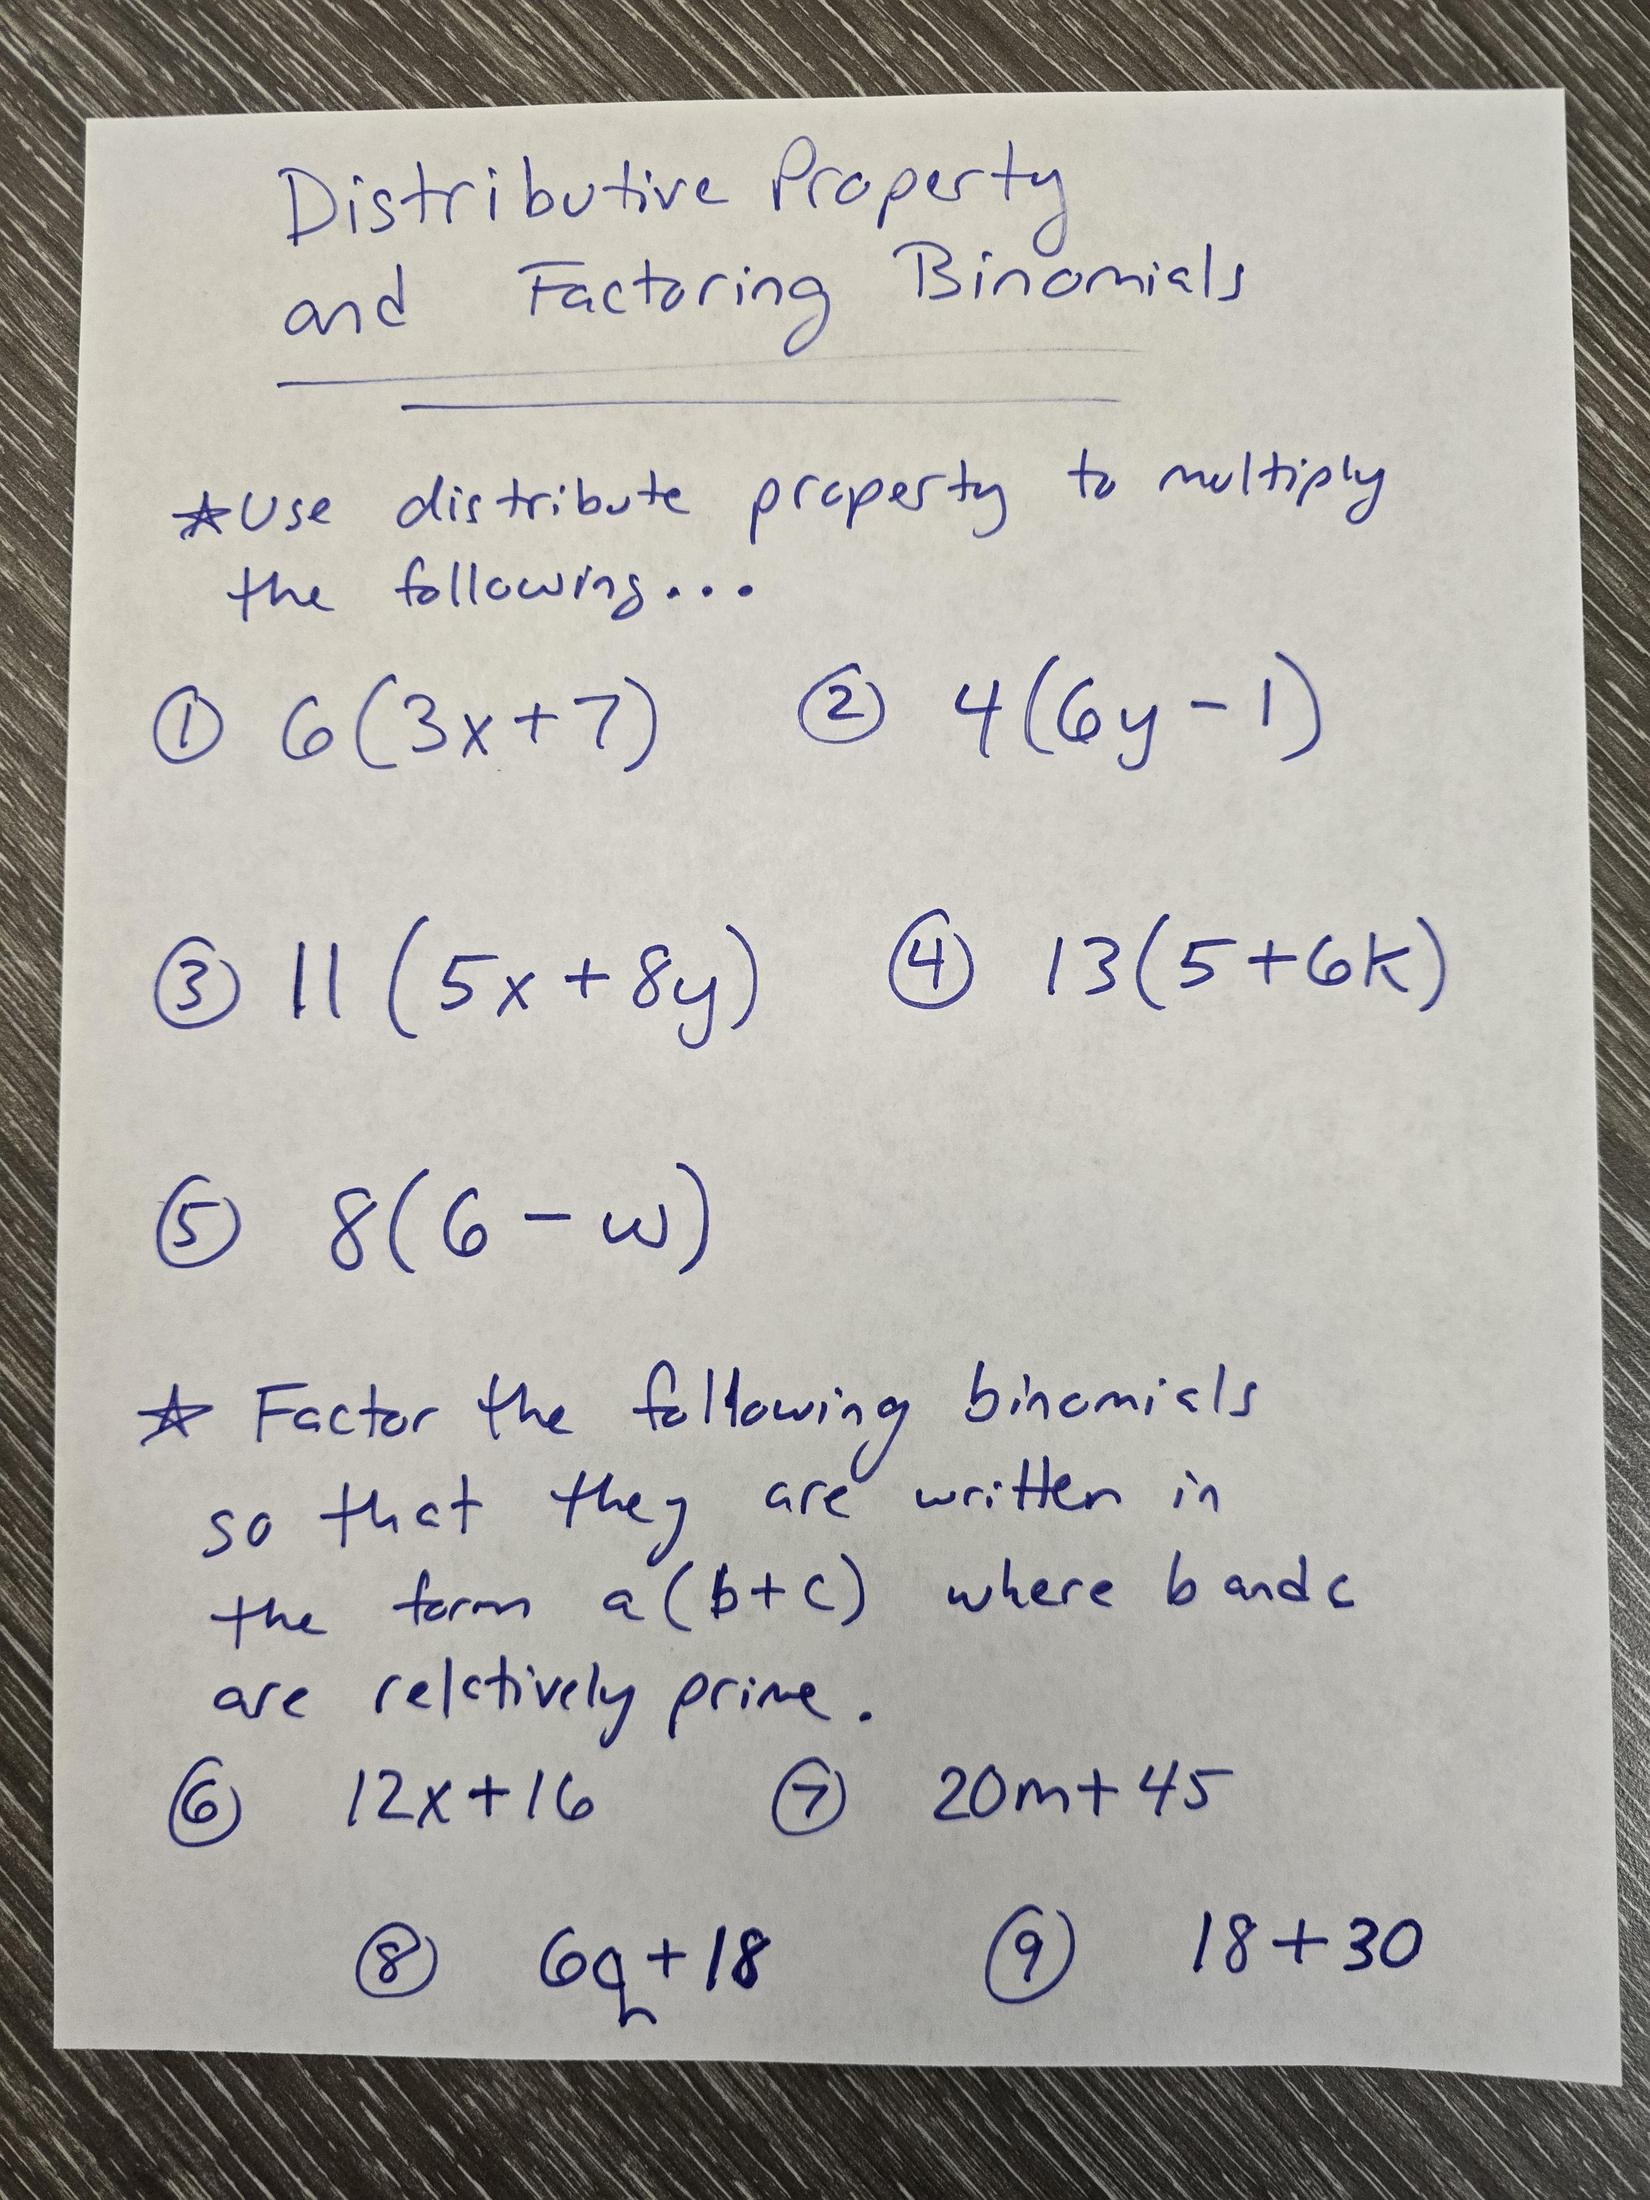 Distributive Property
and Factoring Binomials
☆ Use distribute property to multiply
the following...
① 6(3x+7) ② 4(6y-1)
③ 11(5x+8y) ④ 13(5+6k)
⑤ 8(6-w)
☆ Factor the following binomials
so that they are written in
the form a(b+c) where b and c
are relatively prime.
⑥ 12x+16 ⑦ 20m+45
⑧ 6q+18 ⑨ 18+30